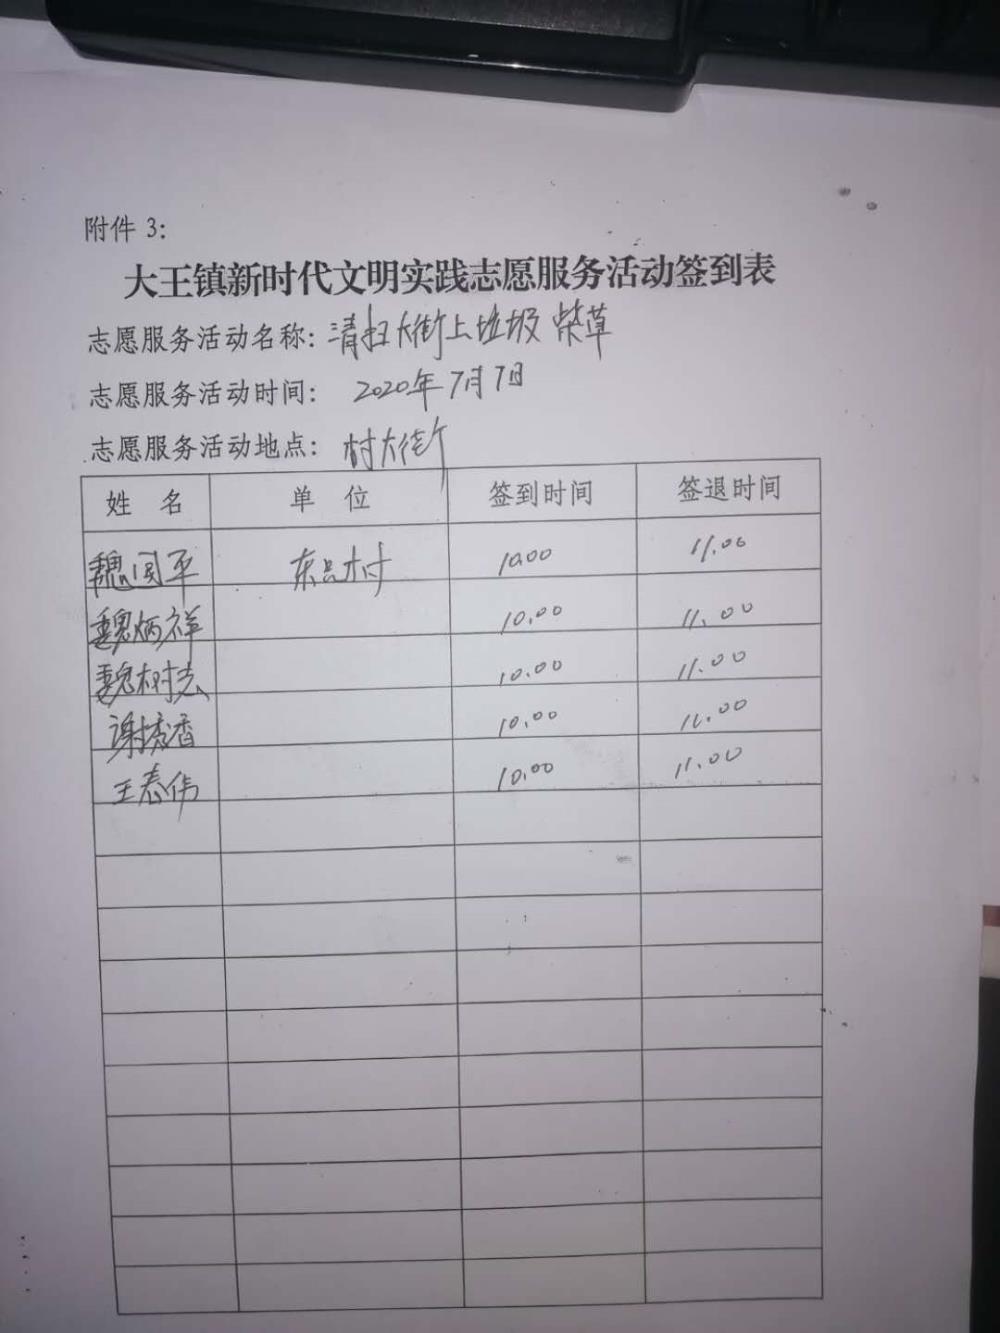 附件 3:
大王镇新时代文明实践志愿服务活动签到表
志愿服务活动名称: 清扫大街上垃圾柴草
志愿服务活动时间: 2020年7月7日
志愿服务活动地点: 村大街
姓 名 单 位 签到时间 签退时间
魏国平 东吕村 10.00 11.00
魏炳祥 10.00 11.00
魏树志 10.00 11.00
谢秀香 10.00 11.00
王春伟 10.00 11.00